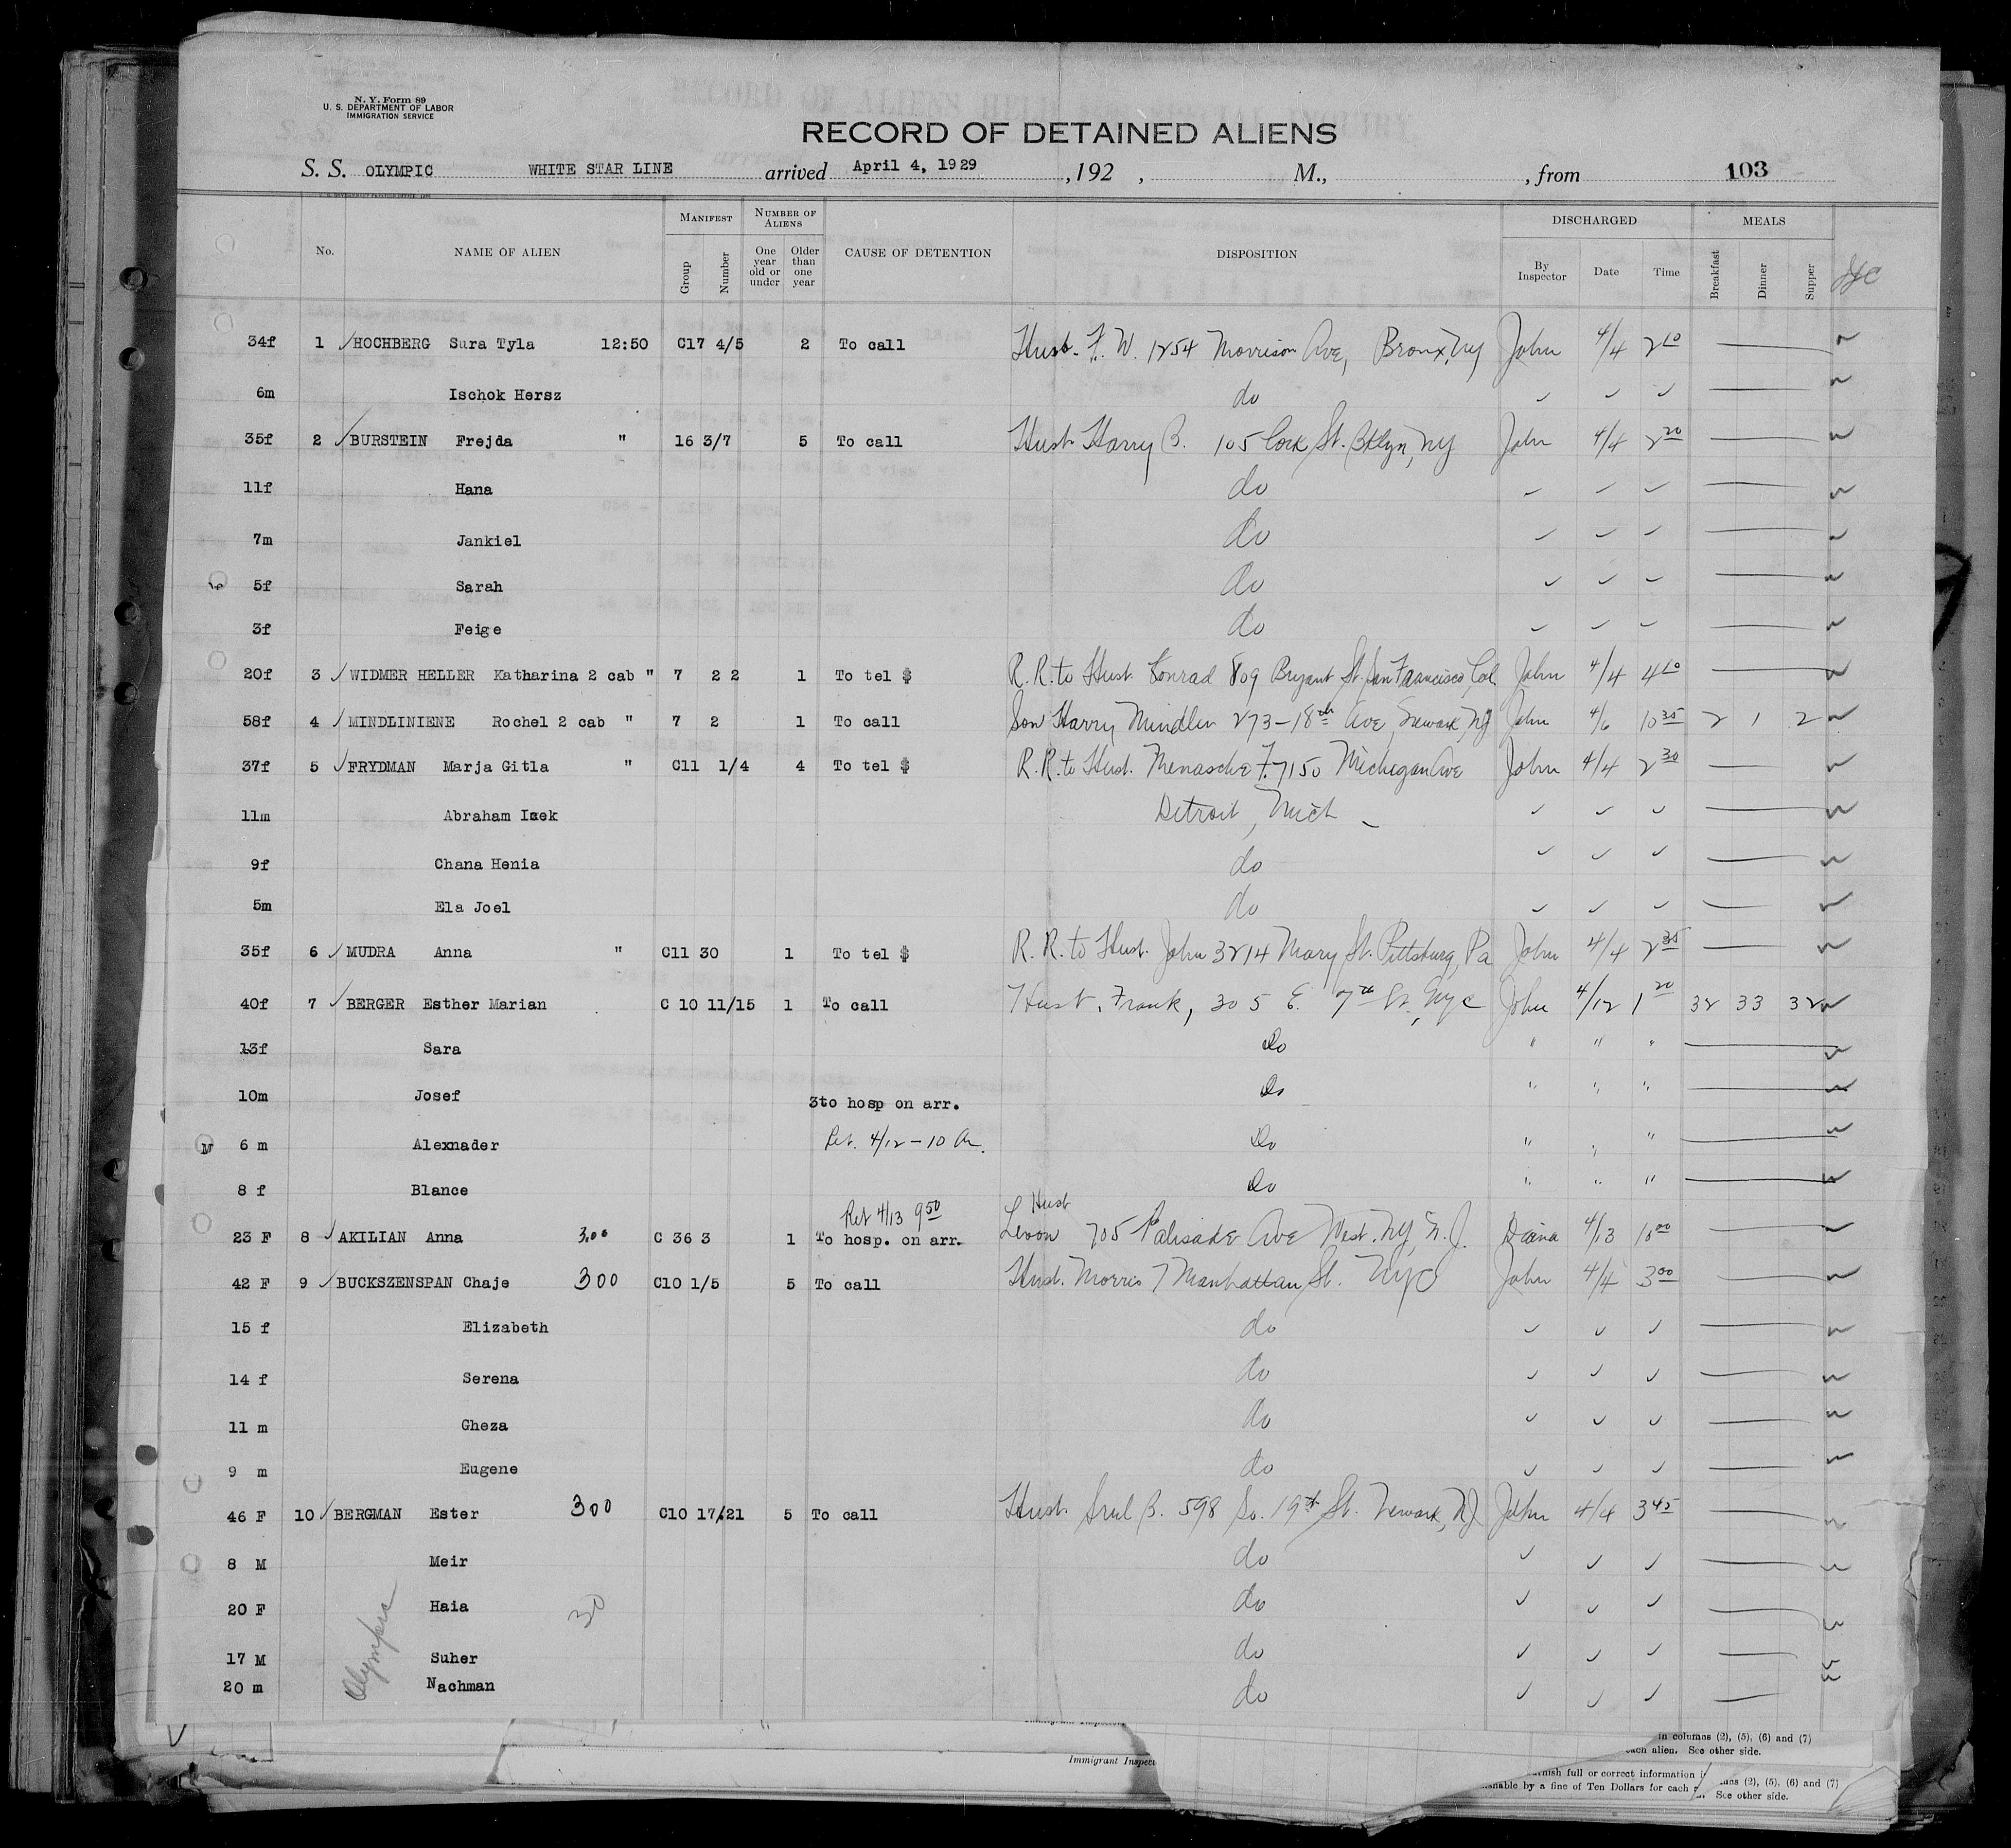 N. Y. Form 89
U. S. DEPARTMENT OF LABOR
IMMIGRATION SERVICE
RECORD OF DETAINED ALIENS
S. S. OLYMPIC WHITE STAR LINE arrived April 4, 1929 , 192 , M., , from 103
No. NAME OF ALIEN MANIFEST Group Number NUMBER OF ALIENS One year old or under Older than one year CAUSE OF DETENTION DISPOSITION DISCHARGED By Inspector Date Time MEALS Breakfast Dinner Supper
34f 1 ✓HOCHBERG Sura Tyla 12:50 C17 4/5 2 To call Hust. F. W. 1254 Morrison Ave, Bronx, NY John 4/4 2 10
6m Ischok Hersz do ✓ ✓ ✓
35f 2 ✓BURSTEIN Frejda " 16 3/7 5 To call Hust Harry B. 105 Cook St. Bklyn, NY John 4/4 2 20
11f Hana do ✓ ✓ ✓
7m Jankiel do ✓ ✓ ✓
5f Sarah do ✓ ✓ ✓
3f Feige do ✓ ✓ ✓
20f 3 ✓WIDMER HELLER Katharina 2 cab " 7 22 1 To tel $ R.R. to Hust. Konrad 809 Bryant St. San Francisco, Cal John 4/4 4 10
58f 4 ✓MINDLINIENE Rochel 2 cab " 7 2 1 To call Son Harry Mindlin 273-18th Ave, Newark, NJ John 4/6 10 35 2 1 2
37f 5 ✓FRYDMAN Marja Gitla " C11 1/4 4 To tel $ R.R. to Hust. Menasche F. 7150 Michigan Ave John 4/4 2 30
11m Abraham Icek Detroit, Mich ✓ ✓ ✓
9f Chana Henia do ✓ ✓ ✓
5m Ela Joel do ✓ ✓ ✓
35f 6 ✓MUDRA Anna " C11 30 1 To tel $ R.R. to Hust. John 3214 Mary St. Pittsburg, Pa John 4/4 2 35
40f 7 ✓BERGER Esther Marian C 10 11/15 1 To call Hust. Frank, 305 E. 7th St., NYC John 4/12 1 20 32 33 32
13f Sara Do " " "
10m Josef 3to hosp on arr. Do " " "
6 m Alexnader Ret. 4/12-10 Do " " "
8 f Blance Do " " "
Ret 4/13 9 50 Hust
23 F 8 ✓AKILIAN Anna 3.00 C 36 3 1 To hosp. on arr. Levon 705 Palisade Ave West. NY, N.J. Diana 4/13 10 00
42 F 9 ✓BUCKSZENSPAN Chaje 300 C10 1/5 5 To call Hust. Morris 7 Manhattan St. NYC John 4/4 3 00
15 f Elizabeth do ✓ ✓ ✓
14 f Serena do ✓ ✓ ✓
11 m Gheza do ✓ ✓ ✓
9 m Eugene do ✓ ✓ ✓
46 F 10 ✓BERGMAN Ester 300 C10 17/21 5 To call Hust. Srul B. 598 So. 19th St. Newark, NJ John 4/4 3 45
8 M Meir do ✓ ✓ ✓
20 F Haia 30 do ✓ ✓ ✓
17 M Suher do ✓ ✓ ✓
20 m Nachman do ✓ ✓ ✓
Olympic
in columns (2), (5), (6) and (7)
each alien. See other side.
Immigrant Inspec
furnish full or correct information i
(2), (5), (6) and (7)
by a fine of Ten Dollars for each
See other side.